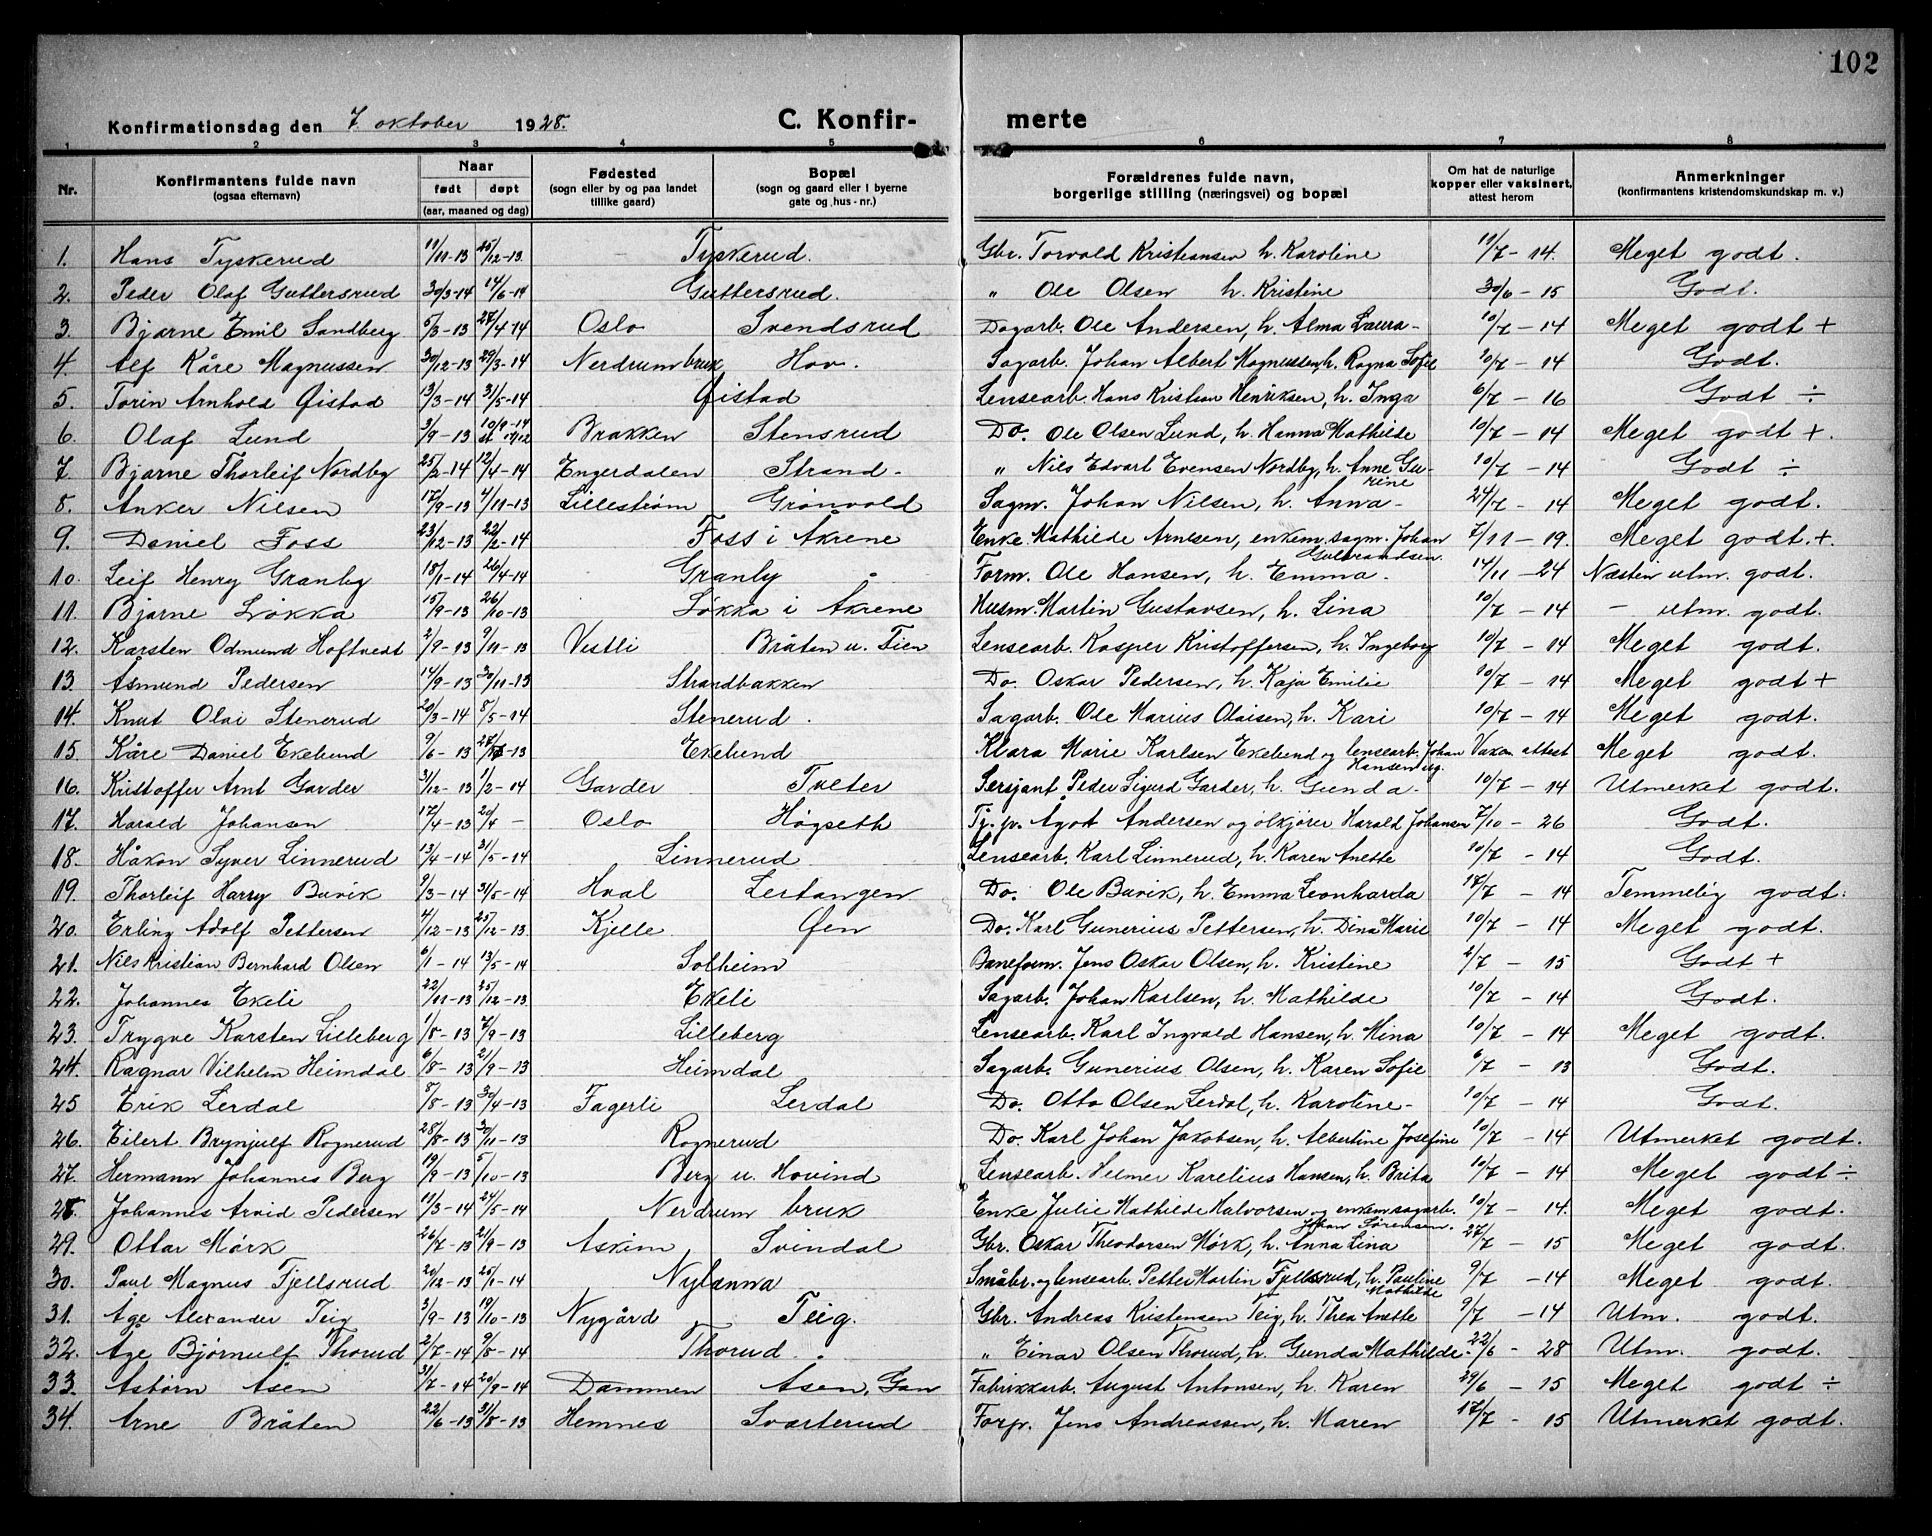 102
Konfirmationsdag den 7. oktober 1928. C. Konfir- merte
1 2 3 4 5 6 7 8
Nr. Konfirmantens fulde navn (ogsaa efternavn) Naar født døpt (aar, maaned og dag) Fødested (sogn eller by og paa landet tillike gaard) Bopæl (sogn og gaard eller i byerne gate og hus-nr.) Forældrenes fulde navn, borgerlige stilling (næringsvei) og bopæl Om hat de naturlige kopper eller vaksinert, attest herom Anmerkninger (konfirmantens kristendomskundskap m. v.)
1. Hans Tyskerud 11/11-13 25/12-13 Tyskerud. Gbr. Torvald Kristiansen h. Karoline 10/7-14. Meget godt.
2. Peder Olaf Guttersrud 30/3-14 14/6-14 Guttersrud. " Ole Olsen h. Kristine 30/6-15 Godt.
3. Bjarne Emil Sandberg 5/3-13 27/4-14 Oslo Svendsrud Dagarb. Ole Andersen, h. Alma Laura- 10/7-14 Meget godt +
4. Alf Kåre Magnussen 30/12-13 29/3-14 Nerdrum bruk Hov. Sagarb. Johan Albert Magnussen, h. Ragna Sofie 10/7-14 Godt.
5. Torin Arnhold Øistad 13/3-14 31/5-14 Øistad Lensearb. Hans Kristian Henriksen, h. Inga 6/7-16 Godt ÷
6. Olaf Lund 3/9-13 10/9-14 Brakken Stensrud Do. Ole Olsen Lund, h. Hanna Mathilde 10/7-14 Meget godt +.
7. Bjarne Thorleif Nordby 25/2-14 12/4-14 Engerdalen Strand- " Nils Edvart Evensen Nordby, h. Anne Gu- 10/7-14 Godt ÷
rine
8. Anker Nilsen 17/9-13 4/11-13 Lillestrøm Grønvold Sagm. Johan Nilsen, h. Anna- 24/7-14 Meget godt.
9. Daniel Foss 23/12-13 22/2-14 Foss i Åkrene Enke Mathilde Arnesen, enkem. sagm. Johan 7/11-19. Meget godt.+.
Gulbrandsen.
10. Leif Henry Granby 18/1-14 26/4-14 Granly Form. Ole Hansen, h. Emma. 14/11-24 Næsten utm. godt.
11. Bjarne Løkka 15/9-13 26/10-13 Løkka i Åkrene Husm. Martin Gustavsen, h. Lina 10/7-14 - utm. godt.
12. Karsten Odmund Hoftvedt 2/9-13 9/11-13 Vestli Bråten u. Tien Lensearb. Kasper Kristoffersen, h. Ingeborg 10/7-14 Meget godt.
13. Åsmund Pedersen 14/9-13 30/11-13 Strandbakken Do. Oskar Pedersen, h. Kaja Emilie 10/7-14 Meget godt +
14. Knut Olai Stenerud 20/3-14 8/5-14 Stenerud. Sagarb. Ole Marius Olaisen, h. Kari 10/7-14 Meget godt.
15. Kåre Daniel Ekelund 9/6-13 Ekelund Klara Marie Karlsen Ekelund og lensearb. Johan Vakn. attest Meget godt.
Hansen
16. Kristoffer Arnt Garder 31/12-13 1/2-14 Garder Tveter Sersjant Peder Sigurd Garder, h. Gunda- 10/7-14 Utmerket godt.
17. Harald Johansen 17/4-13 20/4- Oslo Høgseth Tj.p. Ågot Andersen og ølkjører Harald Johansen 7/10-26 Godt.
18. Håkon Syver Linnerud 13/4-14 31/5-14 Linnerud Lensearb. Karl Linnerud, h. Karen Anette 10/7-14 Godt.
19. Thorleif Harry Buvik 9/3-14 31/5-14 Hval Lertangen Do. Ole Buvik, h. Emma Leonharda 17/7-14 Temmelig godt.
20. Erling Adolf Pettersen 4/12-13 25/12-13 Kjelle Øen Do. Karl Gunerius Pettersen, h. Dina Marie 10/7-14 Meget godt.
21. Nils Kristian Bernhard Olsen 6/1-14 13/5-14 Solheim Baneform. Jens Oskar Olsen, h. Kristine 2/7-15 Godt +
22. Johannes Ekeli 22/11-13 25/12-13 Ekeli Sagarb. Johan Karlsen, h. Mathilde 10/7-14 Godt.
23. Trygve Karsten Lilleberg 1/8-13 7/9-13 Lilleberg Lensearb. Karl Ingvald Hansen, h. Mina 10/7-14 Meget godt.
24. Ragnar Vilhelm Heimdal 6/8-13 21/9-13 Heimdal Sagarb. Gunerius Olsen, h. Karen Sofie 6/7-13 Godt.
25 Erik Lerdal 8/8-13 30/4-13 Fagerli Lerdal Do. Otto Olsen Lerdal, h. Karoline- 10/7-14 Godt.
26. Eilert Brynjulf Rognerud 28/8-13 30/11-13 Rognerud Do. Karl Johan Jakobsen, h. Albertine Josefine 10/7-14 Utmerket godt.
27. Hermann Johannes Berg 19/9-13 5/10-13 Berg u. Hovind Lensearb. Helmer Karelius Hansen, h. Brita 10/7-14 Meget godt ÷
28. Johannes Arvid Pedersen 11/3-14 24/5-14 Nerdrum bruk Enke Julie Mathilde Halvorsen og enkem. sagarb. 10/7-14. Meget godt.
Johan Sørensen.
29. Ottar Mørk 26/7-13 21/9-13 Askim Svindal Gbr. Oskar Theodorsen Mørk, h. Anna Lina 27/7-15 Meget godt.
30. Paul Magnus Fjellsrud 21/12-13 25/1-14 Nylanna Småbr. og lensearb. Petter Martin Fjellsrud, h. Pauline 9/7-14 Meget godt.
Mathilde
31. Åge Alexander Teig 3/9-13 19/10-13 Nygård Teig. Gbr. Andreas Kristensen Teig, h. Thea Anette 9/7-14 Utm. godt.
32. Åge Bjørnulf Thorud 2/7-14 9/8-14 Thorud. " Einar Olsen Thorud, h. Gunda Mathilde. 22/6-28 Utm. godt.
33. Asbørn Åsen 31/7-14 20/9-14 Dammen Åsen, Gan Fabrikkarb. August Antonsen, h. Karen 29/6-15 Meget godt ÷
34. Arne Bråten 22/6-13 31/8-13 Hemnes Svarterud Forp. Jens Andreassen, h. Maren 17/7-15 Utmerket godt.